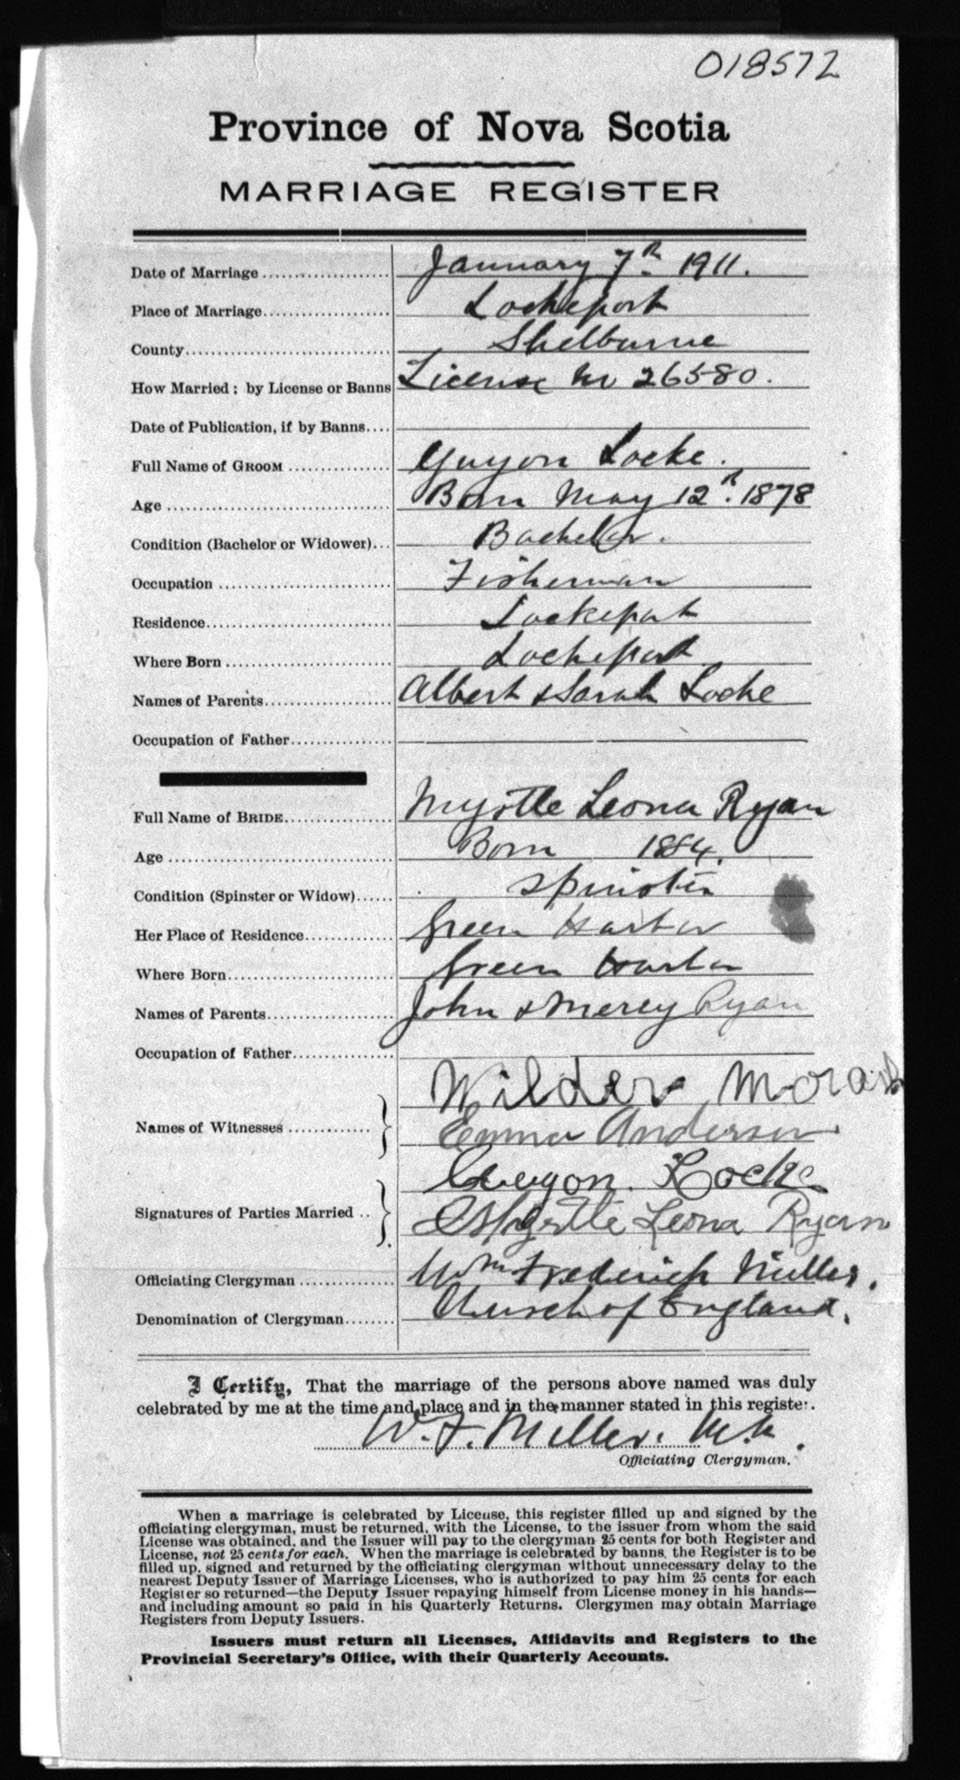 018572
Province of Nova Scotia
MARRIAGE REGISTER
Date of Marriage .................. January 7th 1911.
Place of Marriage.................. Lockeport
County.................. Shelburne
How Married; by License or Banns License No 26580.
Date of Publication, if by Banns....
Full Name of GROOM .................. Guyon Locke.
Age .................. Born May 12th. 1878
Condition (Bachelor or Widower)... Bachelor.
Occupation .................. Fisherman
Residence.................. Lockeport
Where Born .................. Lockeport
Names of Parents.................. Albert & Sarah Locke
Occupation of Father..................
Full Name of BRIDE.................. Myrtle Leona Ryan
Age .................. Born 1884.
Condition (Spinster or Widow)...... Spinster
Her Place of Residence.................. Green Harbor
Where Born.................. Green Harbor
Names of Parents.................. John & Mercy Ryan
Occupation of Father..................
Wilder Morash
Names of Witnesses ..................
Emma Anderson
Guyon Locke
Signatures of Parties Married ..
Myrtle Leona Ryan
Officiating Clergyman .................. Wm Frederick Miller.
Denomination of Clergyman........ Church of England.
I Certify, That the marriage of the persons above named was duly
celebrated by me at the time and place and in the manner stated in this register.
W. F. Miller.
Officiating Clergyman.
When a marriage is celebrated by License, this register filled up and signed by the
officiating clergyman, must be returned, with the License, to the issuer from whom the said
License was obtained, and the Issuer will pay to the clergyman 25 cents for both Register and
License, not 25 cents for each. When the marriage is celebrated by banns, the Register is to be
filled up, signed and returned by the officiating clergyman without unnecessary delay to the
nearest Deputy Issuer of Marriage Licenses, who is authorized to pay him 25 cents for each
Register so returned—the Deputy Issuer repaying himself from License money in his hands—
and including amount so paid in his Quarterly Returns. Clergymen may obtain Marriage
Registers from Deputy Issuers.
Issuers must return all Licenses, Affidavits and Registers to the
Provincial Secretary's Office, with their Quarterly Accounts.